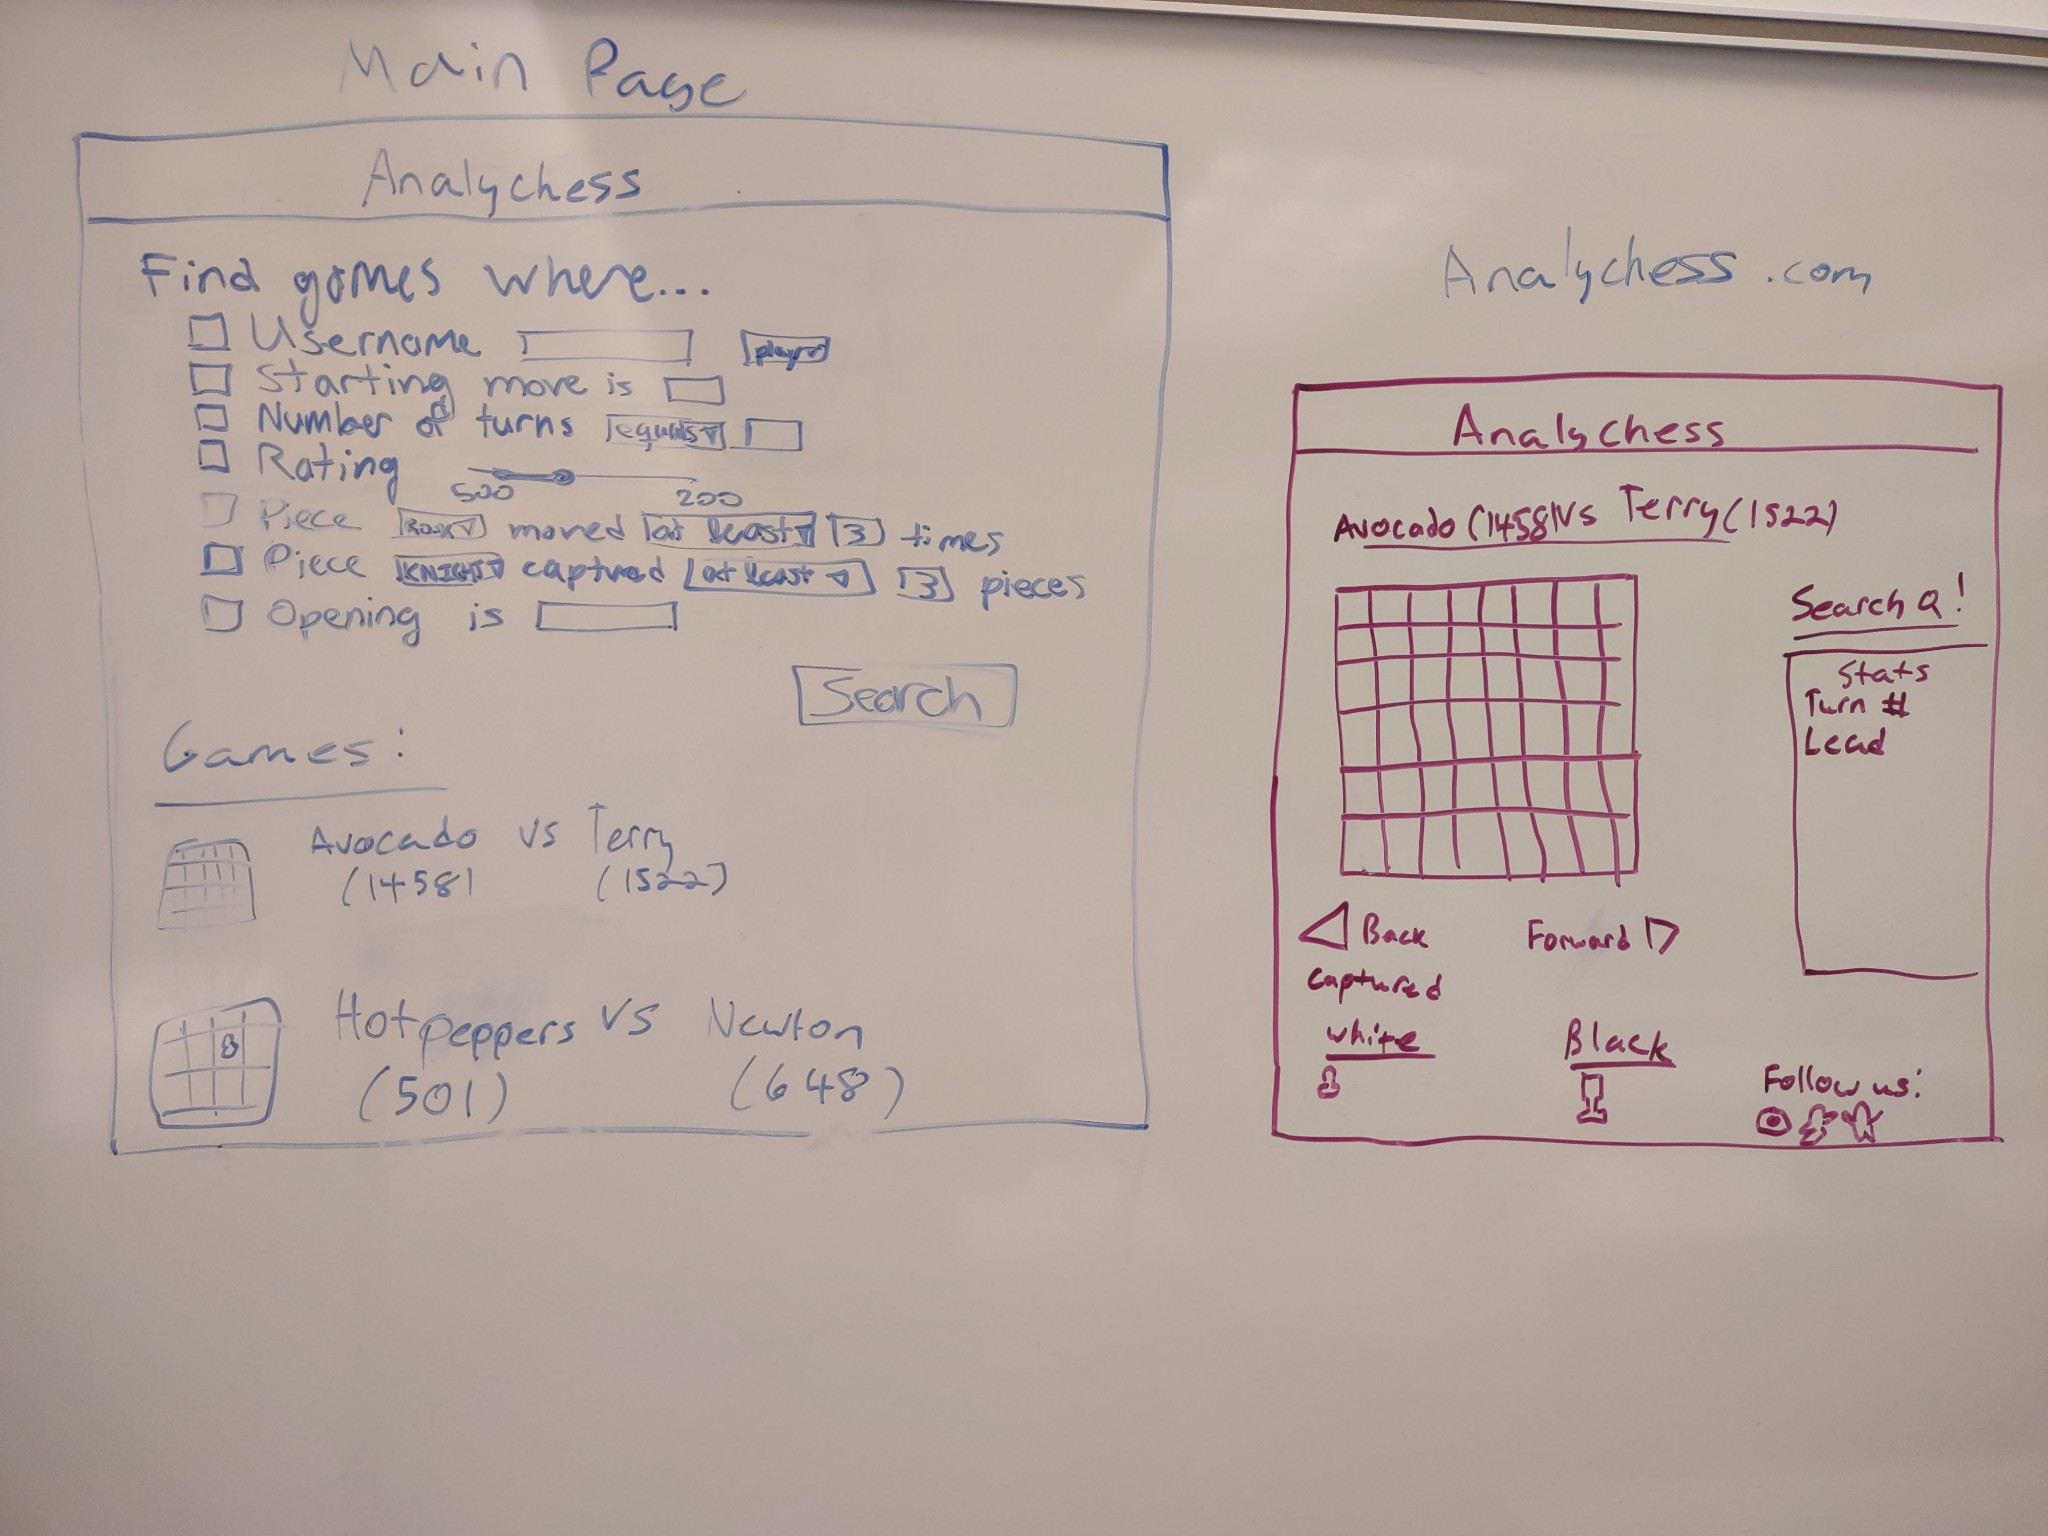 Main Page
Analychess
Find games where...
Username player
Starting move is
Number of turns equals
Rating
500 200
Piece Rook moved at least 3 times
Piece KNIGHT captured at least 3 pieces
Opening is
Search
Games:
Avocado vs Terry
(1458) (1522)
Hotpeppers vs Newton
(501) (648)
Analychess.com
Analychess
Avocado (1458) vs Terry (1522)
Search Q!
Stats
Turn #
Lead
Back Forward
Captured
White Black
Follow us: